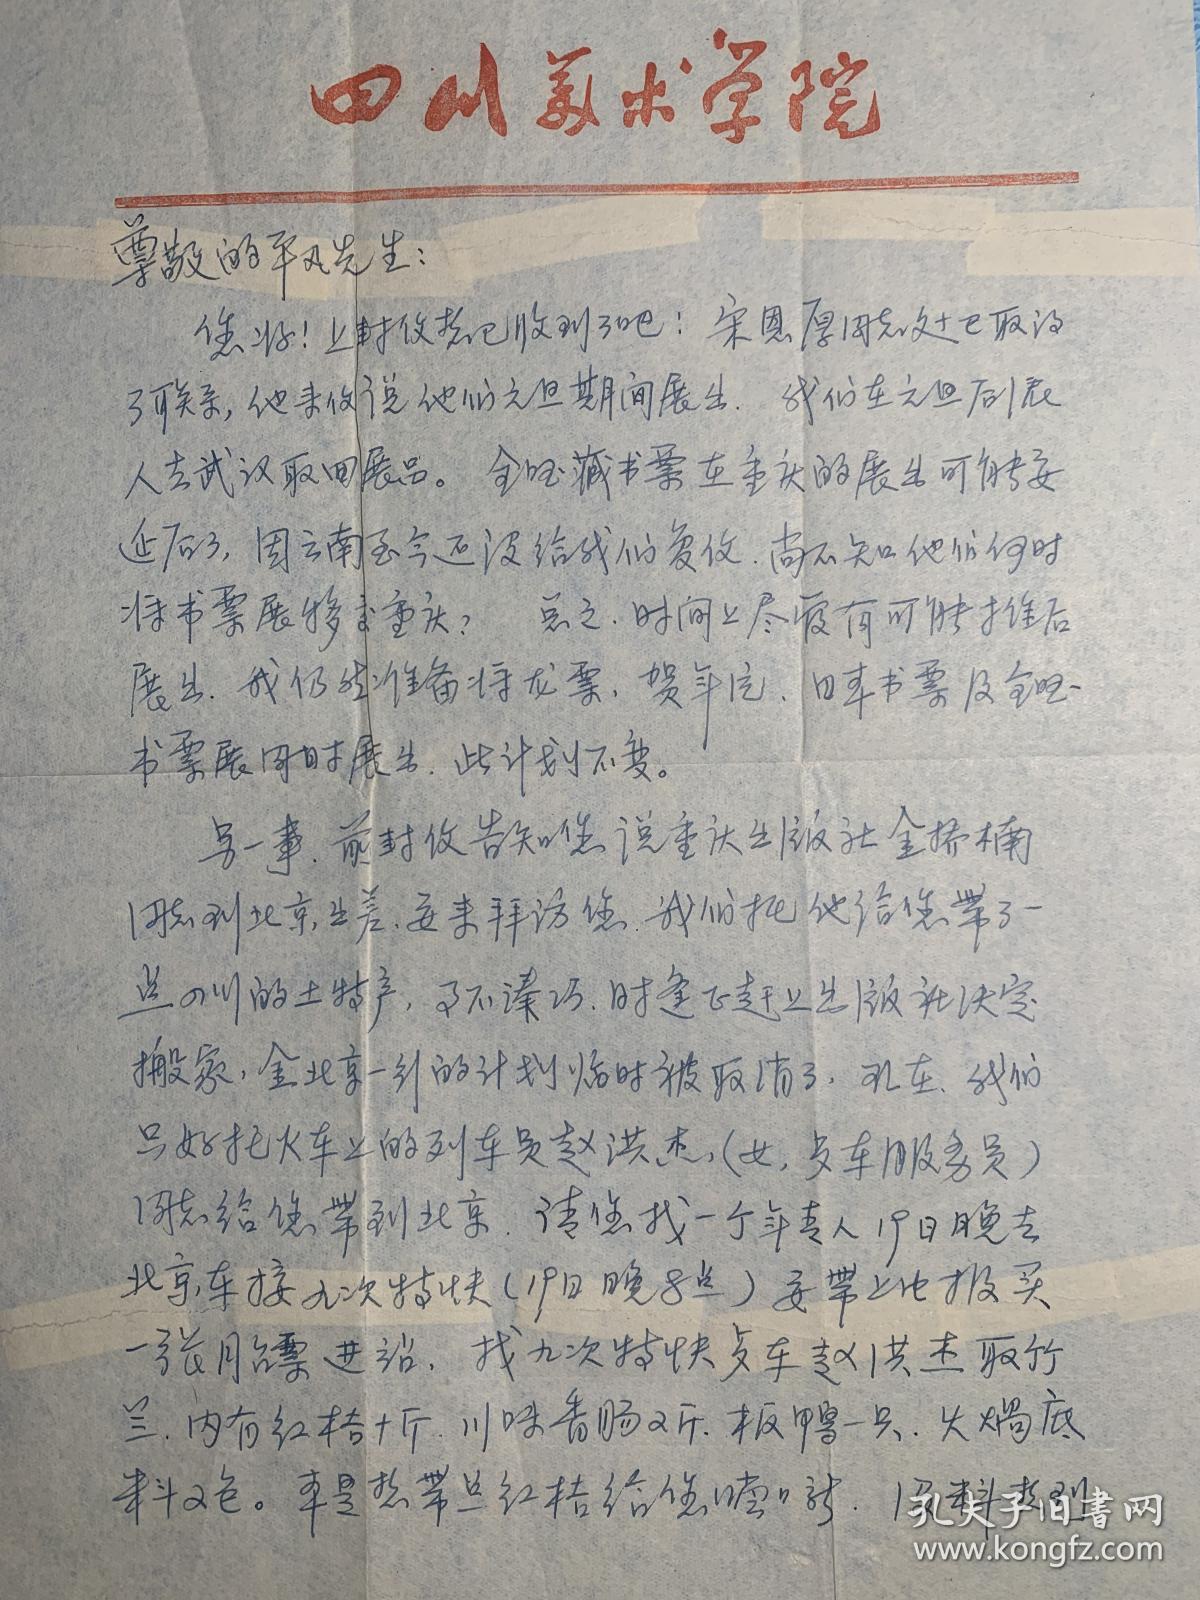 四川美术学院
尊敬的平凡先生:
您好!上封信想已收到了吧!宋恩厚同志处也取得
了联系,他来信说他们元旦期间展出.我们在元旦后派
人去武汉取回展品。全国藏书票在重庆的展出可能要
延后了,因云南至今还没给我们复信.尚不知他们何时
将书票展移交重庆?总之.时间上尽管有可能推后
展出.我仍然准备将龙票,贺年片,日本书票及全国
书票展同时展出.此计划不变。
另一事.前封信告知您说重庆出版社金乔楠
同志到北京出差.要来拜访您.我们托他给您带了一
点四川的土特产,事不凑巧.时逢正赶上出版社决定
搬家,金北京一行的计划临时被取消了.现在.我们
只好托火车上的列车员赵洪杰,(女,餐车服务员)
同志给您带到北京.请您找一个年青人19日晚去
北京车接九次特快(19日晚8点)要带上电报买
一张月台票进站.找九次特快餐车赵洪杰取竹
兰.内有红桔十斤.川味香肠2斤.板鸭一只.火锅底
料2包。本是想带点红桔给您嚐口新.没料想到
孔夫子旧书网
www.kongfz.com